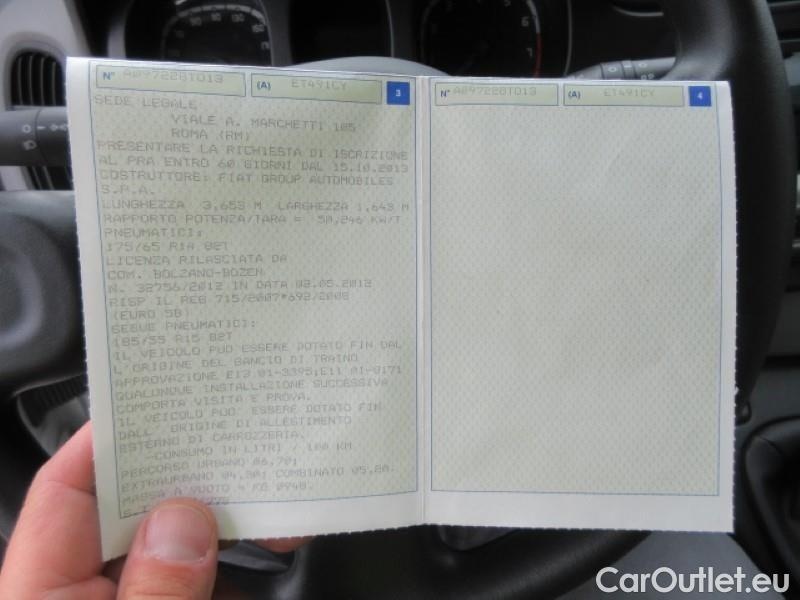 N° A097228T013 (A) ET491CY 3
SEDE LEGALE
VIALE A. MARCHETTI 105
ROMA (RM)
PRESENTARE LA RICHIESTA DI ISCRIZIONE
AL PRA ENTRO 60 GIORNI DAL 15.10.2013
COSTRUTTORE: FIAT GROUP AUTOMOBILES
S.P.A.
LUNGHEZZA 3,653 M LARGHEZZA 1,643 M
RAPPORTO POTENZA/TARA = 50,246 KW/T
PNEUMATICI:
175/65 R14 82T
LICENZA RILASCIATA DA
COM. BOLZANO-BOZEN
N. 32756/2012 IN DATA 02.05.2012
RISP IL REG 715/2007*692/2008
(EURO 5B)
SEGUE PNEUMATICI:
185/55 R15 82T
IL VEICOLO PUO ESSERE DOTATO FIN DAL
L'ORIGINE DEL GANCIO DI TRAINO
APPROVAZIONE E13 01-3395;E11 01-8171
QUALUNQUE INSTALLAZIONE SUCCESSIVA
COMPORTA VISITA E PROVA.
IL VEICOLO PUO' ESSERE DOTATO FIN
DALL' ORIGINE DI ALLESTIMENTO
ESTERNO DI CARROZZERIA.
-CONSUMO IN LITRI / 100 KM
PERCORSO URBANO 06,70;
EXTRAURBANO 04,30; COMBINATO 05,20.
MASSA A VUOTO = KG 0940.
N° A097228T013 (A) ET491CY 4
CarOutlet.eu